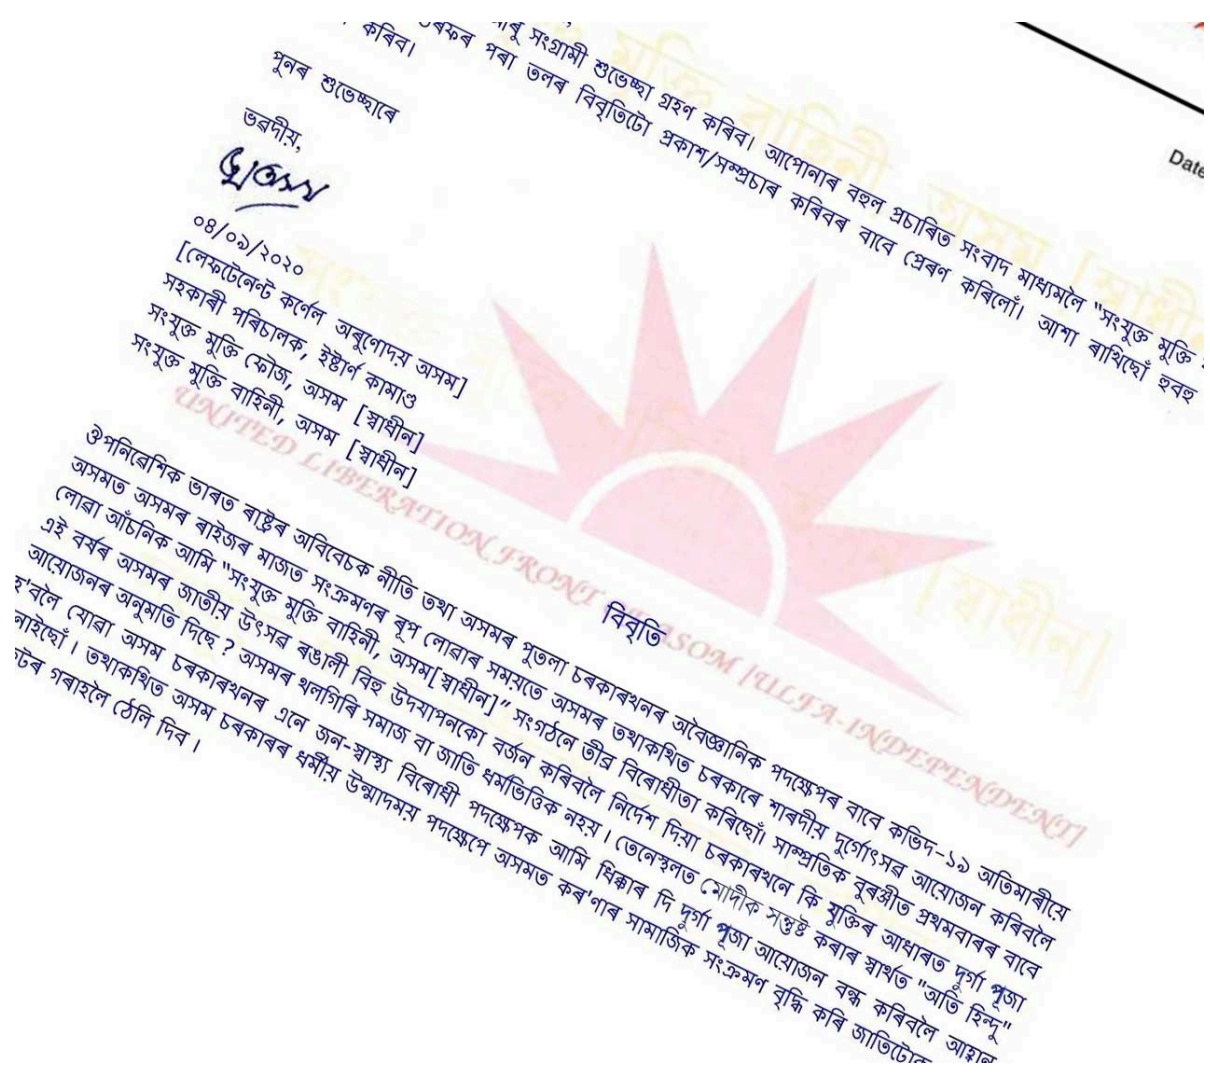 Date
সংগ্ৰামী শুভেচ্ছা গ্ৰহণ কৰিব। আপোনাৰ বহুল প্ৰচাৰিত সংবাদ মাধ্যমলৈ "সংযুক্ত মুক্তি
পৰা তলৰ বিবৃতিটো প্ৰকাশ/সম্প্ৰচাৰ কৰিবৰ বাবে প্ৰেৰণ কৰিলোঁ। আশা ৰাখিছোঁ হুবহু
কৰিব।
পুনৰ শুভেচ্ছাৰে
ভৱদীয়,
০৪/০৯/২০২০
[লেফটেনেণ্ট কৰ্ণেল অৰুণোদয় অসম]
সহকাৰী পৰিচালক, ইষ্টাৰ্ণ কামাণ্ড
সংযুক্ত মুক্তি ফৌজ, অসম [স্বাধীন]
সংযুক্ত মুক্তি বাহিনী, অসম [স্বাধীন]
UNITED LIBERATION FRONT ASOM [ULFA-INDEPENDENT]
বিবৃতি
ঔপনিৱেশিক ভাৰত ৰাষ্ট্ৰৰ অবিবেচক নীতি তথা অসমৰ পুতলা চৰকাৰখনৰ অবৈজ্ঞানিক পদক্ষেপৰ বাবে কভিদ-১৯ অতিমাৰীয়ে
অসমত অসমৰ ৰাইজৰ মাজত সংক্ৰমণৰ ৰূপ লোৱাৰ সময়তে অসমৰ তথাকথিত চৰকাৰে শাৰদীয় দুৰ্গোৎসৱ আয়োজন কৰিবলৈ
লোৱা আঁচনিক আমি "সংযুক্ত মুক্তি বাহিনী, অসম[স্বাধীন]" সংগঠনে তীব্ৰ বিৰোধীতা কৰিছোঁ। সাম্প্ৰতিক বুৰঞ্জীত প্ৰথমবাৰৰ বাবে
এই বৰ্ষৰ অসমৰ জাতীয় উৎসৱ ৰঙালী বিহু উদযাপনকো বৰ্জন কৰিবলৈ নিৰ্দেশ দিয়া চৰকাৰখনে কি যুক্তিৰ আধাৰত দুৰ্গা পূজা
আয়োজনৰ অনুমতি দিছে ? অসমৰ থলগিৰি সমাজ বা জাতি ধৰ্মভিত্তিক নহয় । তেনেস্থলত মোদীক সন্তুষ্ট কৰাৰ স্বাৰ্থত "অতি হিন্দু"
হ'বলৈ যোৱা অসম চৰকাৰখনৰ এনে জন-স্বাস্থ্য বিৰোধী পদক্ষেপক আমি ধিক্কাৰ দি দুৰ্গা পূজা আয়োজন বন্ধ কৰিবলৈ আহ্বান
তথাকথিত অসম চৰকাৰৰ ধৰ্মীয় উন্মাদময় পদক্ষেপে অসমত কৰ'ণাৰ সামাজিক সংক্ৰমণ বৃদ্ধি কৰি
গৰাহলৈ ঠেলি দিব ।